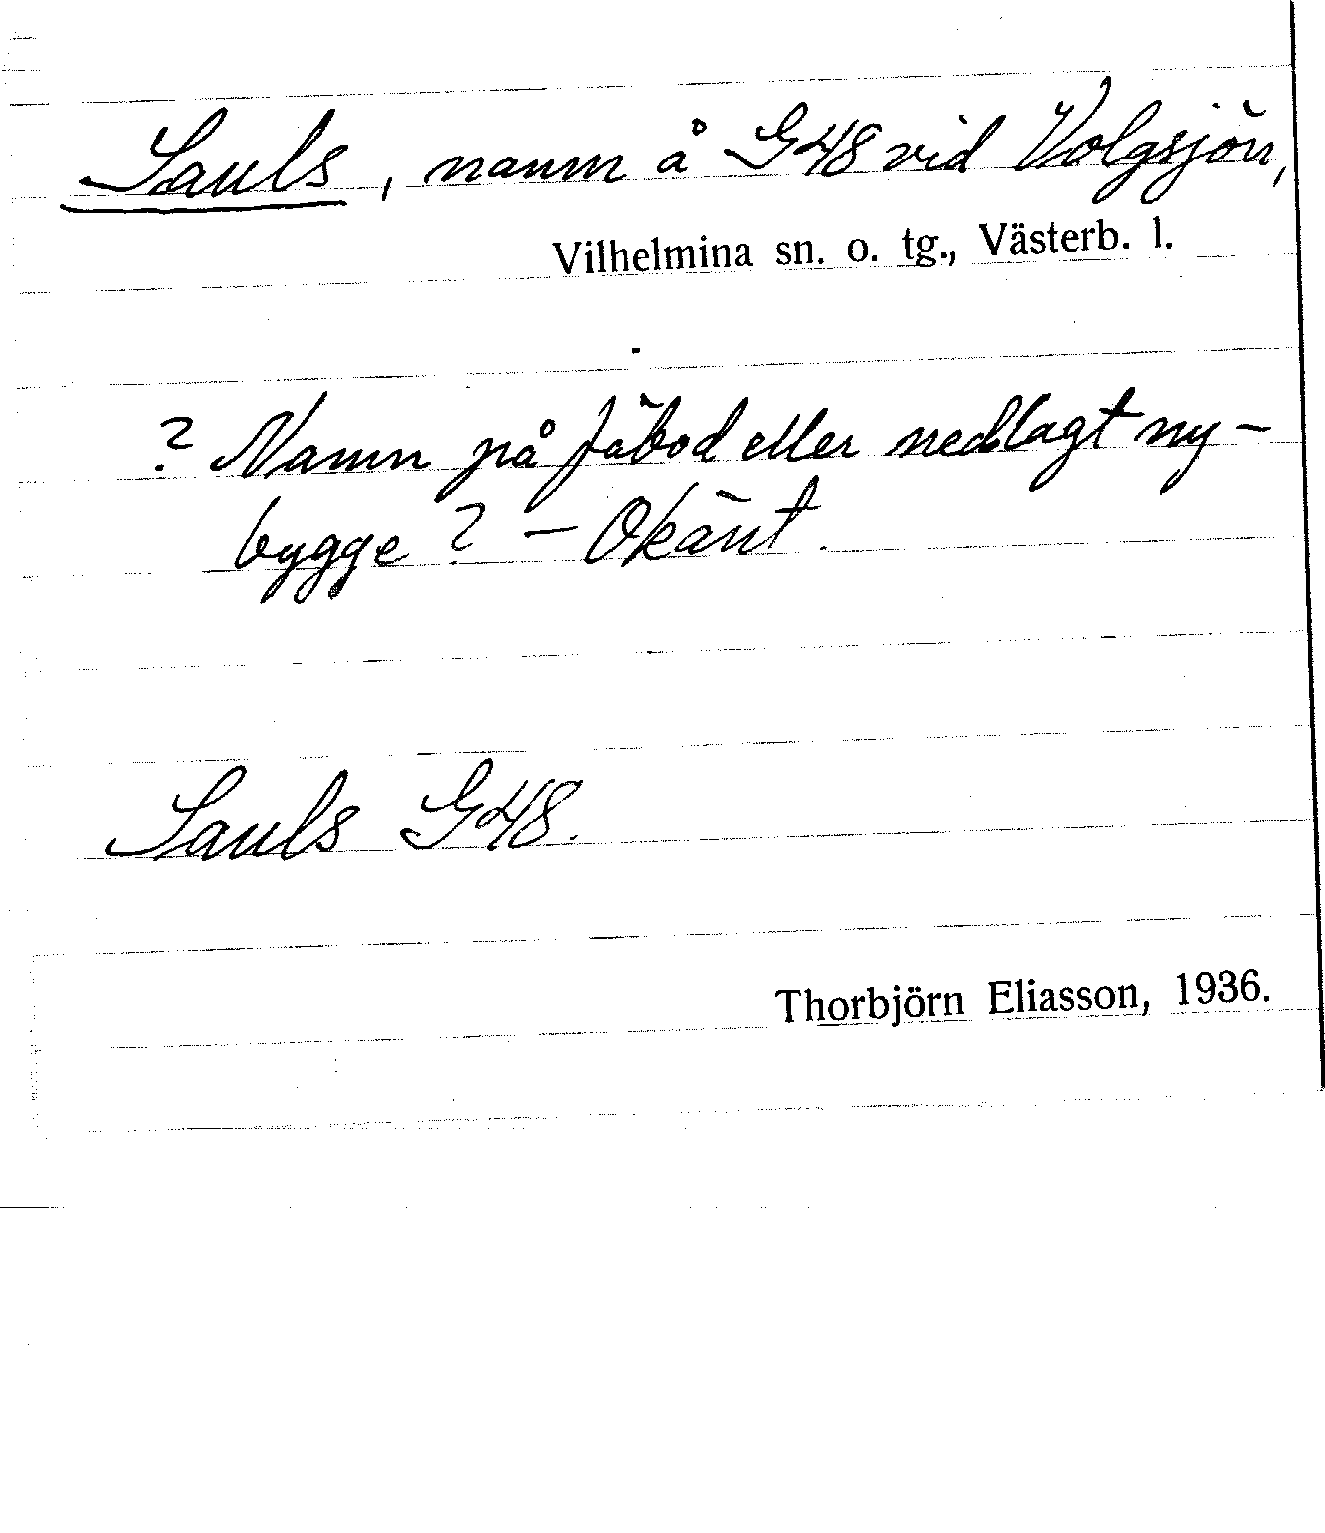 Sauls, namn å G48 vid Volgsjön,
Vilhelmina sn. o. tg., Västerb. l.
? Namn på fäbod eller nedlagt ny-
bygge? - Okänt.
Sauls G48.
Thorbjörn Eliasson, 1936.